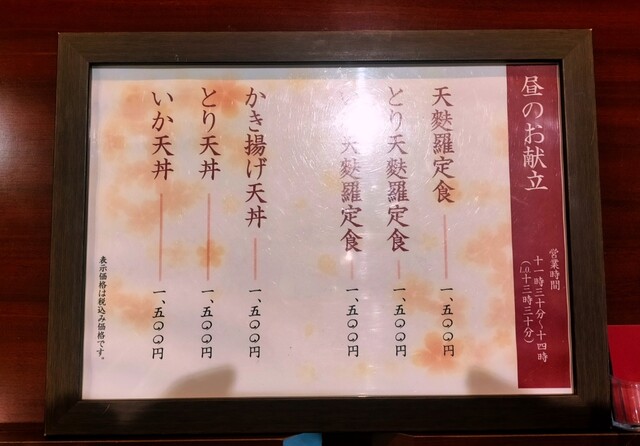 昼のお献立
営業時間
十一時三十分〜十四時
(L.O.十三時三十分)
天麩羅定食 一、五〇〇円
とり天麩羅定食 一、五〇〇円
天麩羅定食 一、五〇〇円
かき揚げ天丼 一、五〇〇円
とり天丼 一、五〇〇円
いか天丼 一、五〇〇円
表示価格は税込み価格です。